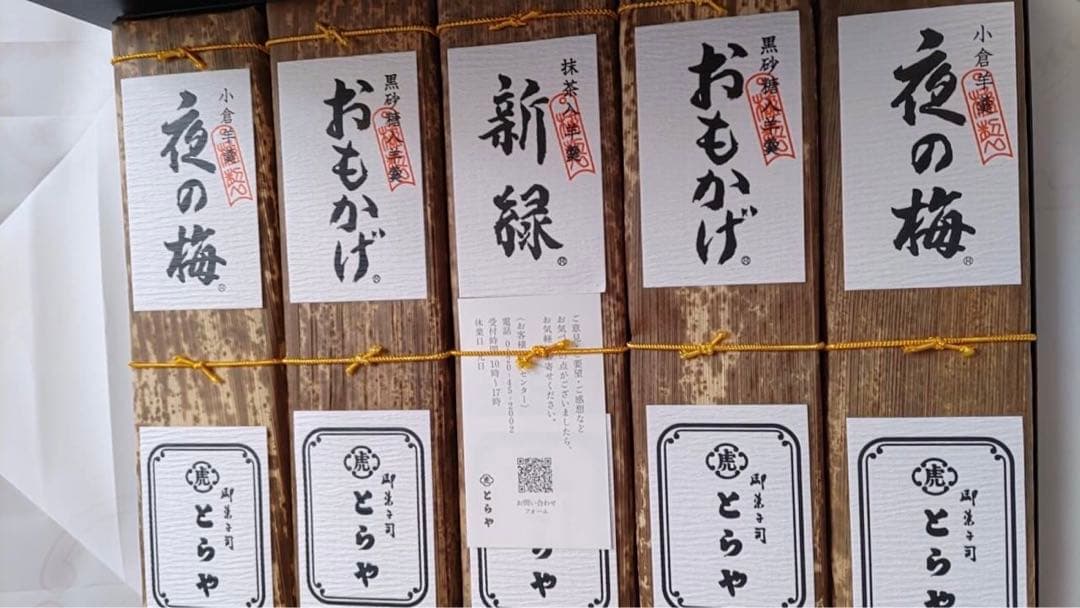 小倉羊羹
夜の梅
御菓子司
とらや
黒砂糖入羊羹
おもかげ
御菓子司
とらや
抹茶入羊羹
新緑
ご意見・ご要望・ご感想など
お気
点がございましたら、
お気軽
寄せください。
センター〉
受付時間
10時〜17時
休業日
虎
とらや
お問い合わせ
フォーム
らや
黒砂糖入羊羹
おもかげ
虎
御菓子司
とらや
小倉羊羹
夜の梅
虎
御菓子司
とらや